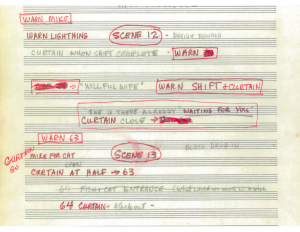 WARN MIKE
WARN LIGHTNING SCENE 12 - DONALD
CURTAIN WHEN SHIFT COMPLETE - WARN
"WILLFUL WIFE" WARN SHIFT + CURTAIN
SHE IS THERE ALREADY WAITING FOR YOU
CURTAIN CLOSE →
WARN 63
CURTAIN GO
MIKE FOR CAT SCENE 13 DROP IN
CURTAIN AT HALF → 63
64 ENTRANCE
64 CURTAIN -